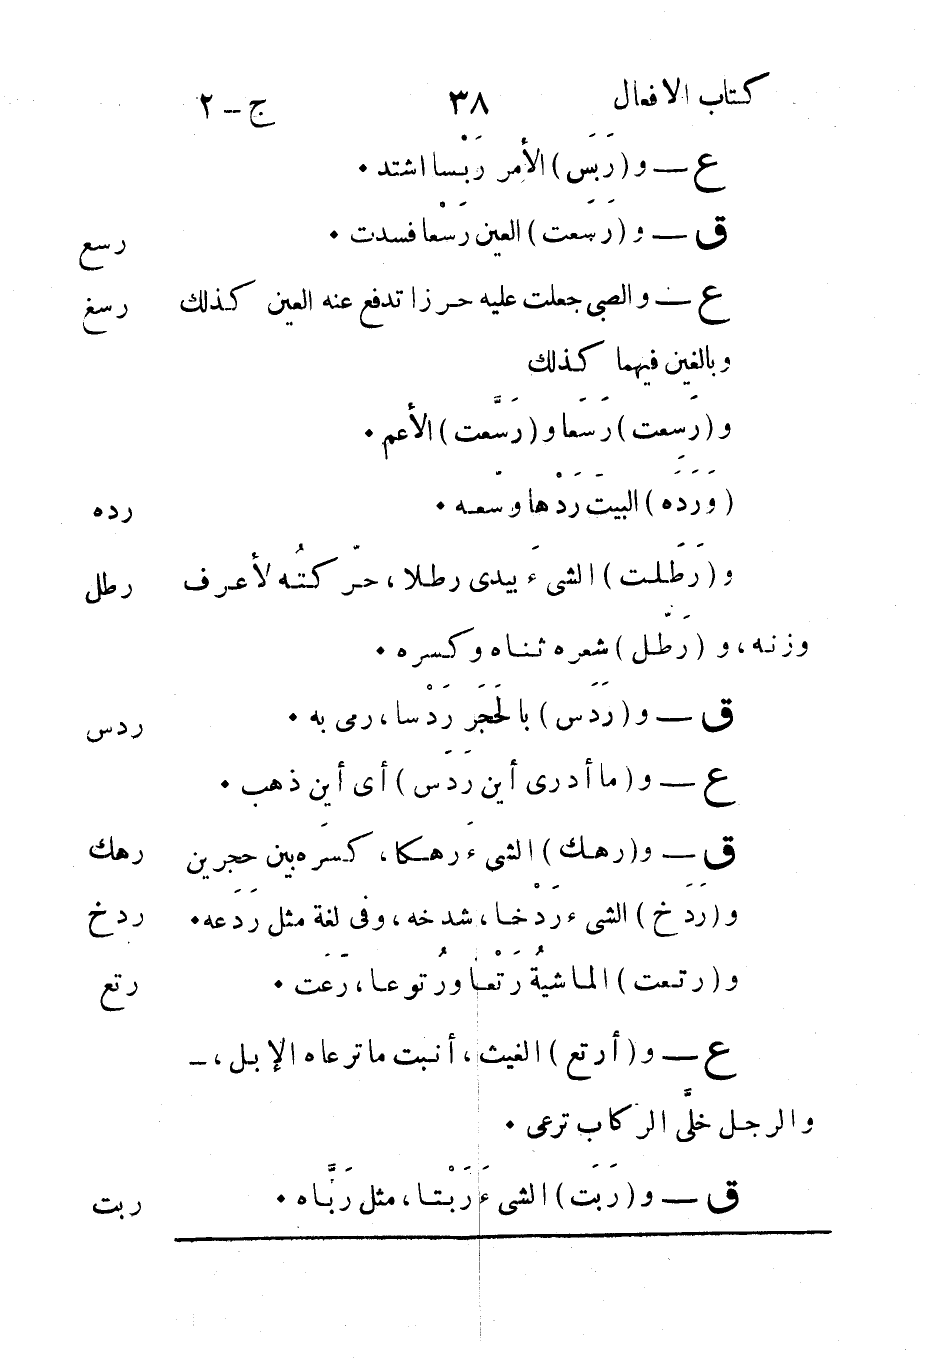 كتاب الافعال ٣٨ ج - ٢
ع — و (رَبَسَ) الأمر رَبْسا اشتد ٠
ق — و (رَسَعت) العين رَسْعا فسدت ٠ رسع
ع — والصبى جعلت عليه حرزا تدفع عنه العين كذلك رسغ
وبالغين فيهما كذلك
و (رَسِعت) رَسَعا و (رَسَّعت) الأعم ٠
(وَرَدَه) البيتَ رَدْها وسّعه ٠ رده
و (رَطَلت) الشىءَ بيدى رطلا، حرّكتُه لأعرف رطل
وزنه، و (رَطّل) شعره ثناه وكسره ٠
ق — و (رَدَس) بالحَجَر رَدْسا، رمى به ٠ ردس
ع — و (ما أدرى أين رَدَس) أى أين ذهب ٠
ق — و (رهك) الشىء رهكا، كسَره بين حجرين رهك
و (رَدَخ) الشىء رَدْخا، شدخه، وفى لغة مثل رَدَعه ٠ ردخ
و (رتعت) الماشيةُ رَتْعا ورُتوعا، رَعَت ٠ رتع
ع — و (أرتع) الغيث، أنبت ما ترعاه الإبل، —
والرجل خلَّى الركاب ترعى ٠
ق — و (رَبَت) الشىءَ رَبْتا، مثل رَبَّاه ٠ ربت